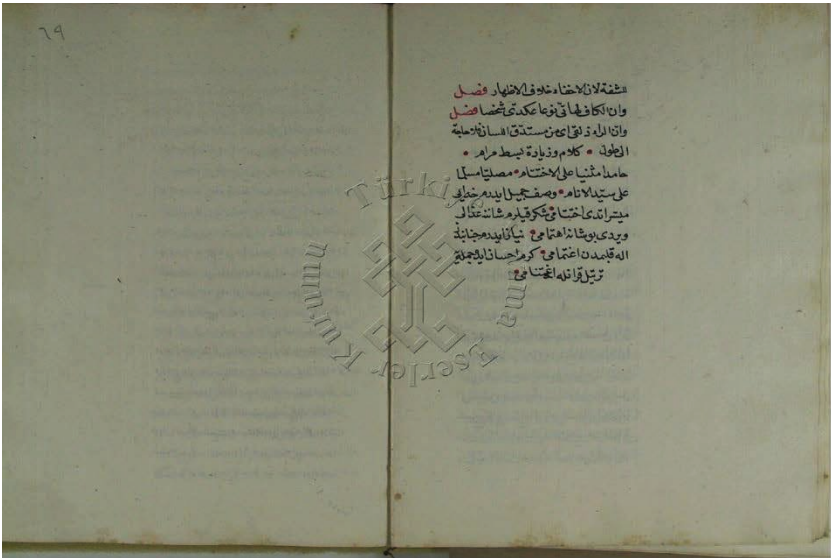 ٦٩
لشفة لان الاخفاء خلاف الاظهار فصل
وان الكاف لها تى نوعا عكدتى شخصا فصل
وان الراء ذلتى اى من مستدق اللسان فلا حاجة
الى طول كلام وزيادة بسط مرام
حامدا مثنيا على الاختتام مصليا مسلما
على سيد الانام وصف جميل ايدرم خدايى
ميسر اتدى اختتامى شكر قيلرم شانه
ويردى بو شانه اهتمامى نياز ايدرم جنابنه
اله قلبمدن اغتمامى كرم احسان ايده جمله يه
ترتيل قرانله اغتنامى
Türkiye Yazma Eserler Kurumu